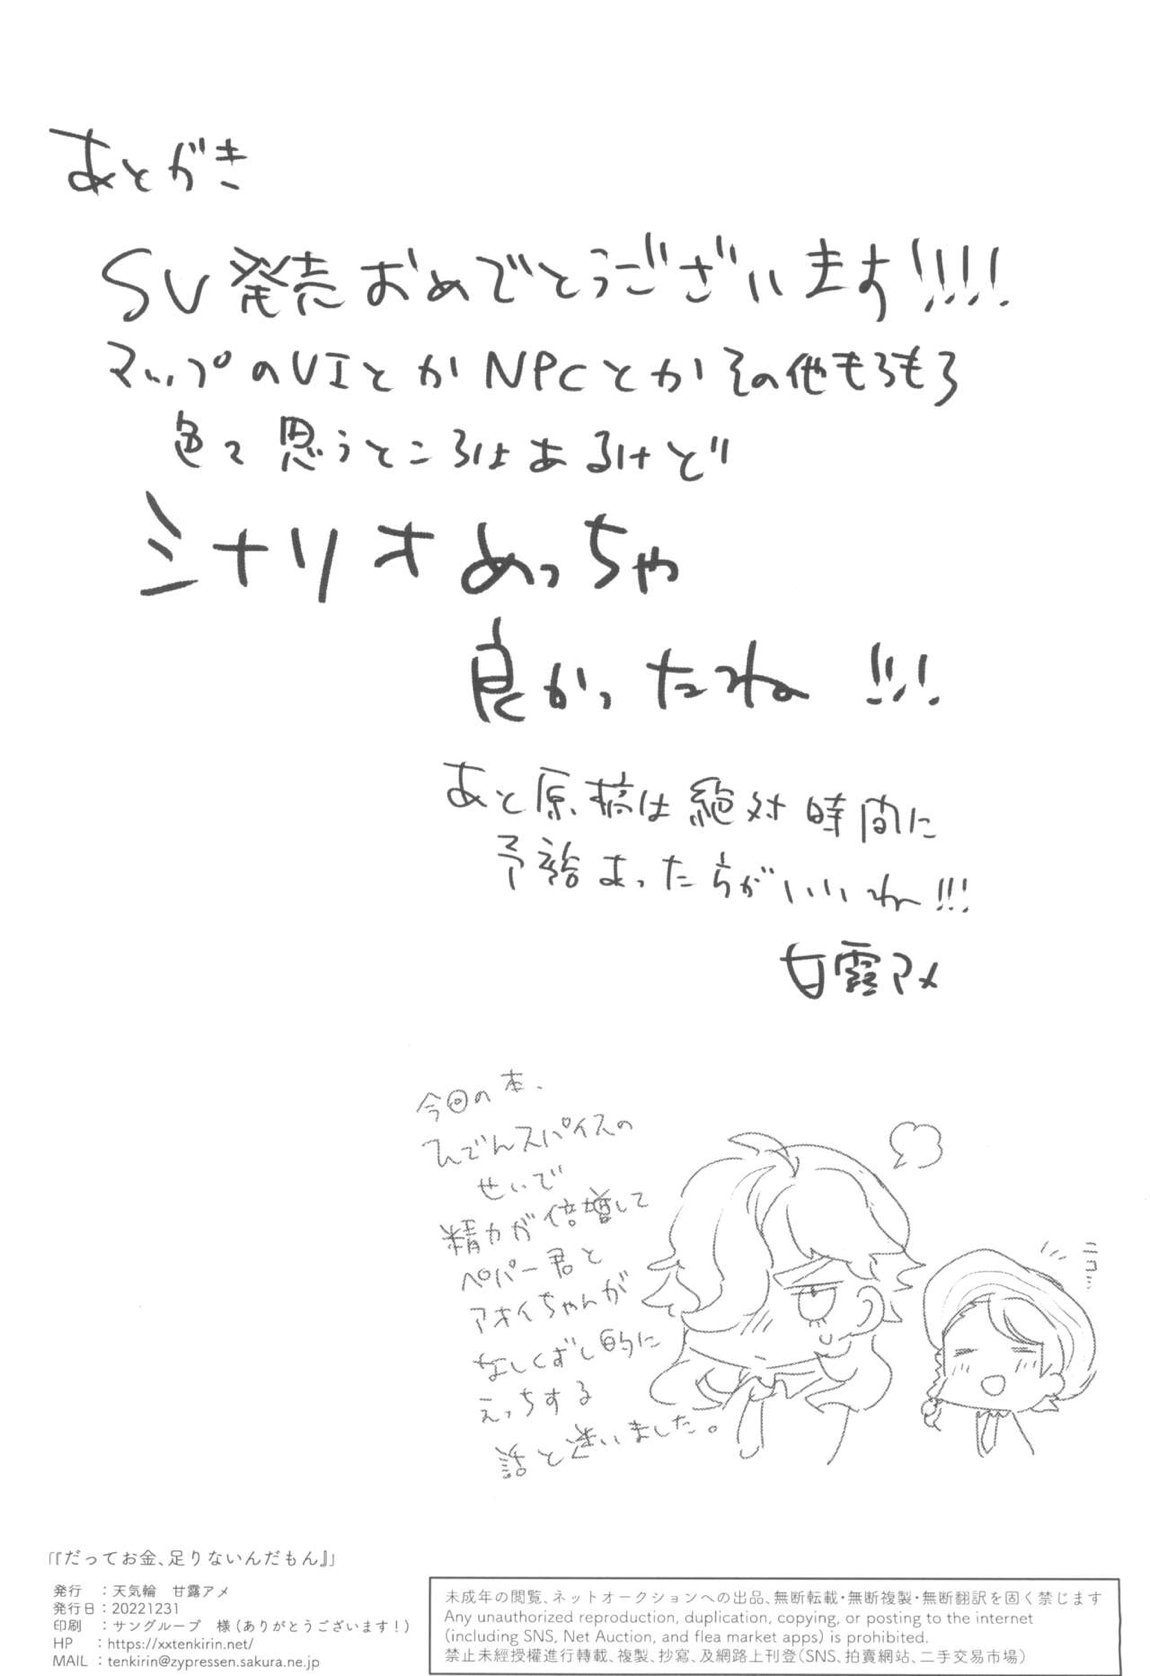 あとがき
SV発売おめでとうございます!!!!
マップのUIとかNPCとかその他もろもろ
色々思うところはあるけど
シナリオめっちゃ
良かったね!!!
あと原稿は絶対時間に
予裕もった方がいいね!!!
甘露アメ
今回の本、
ひでんスパイスの
せいで
精力が倍増して
ペパー君と
アオイちゃんが
なしくずし的に
えっちする
話と迷いました。
ニコ…
「『だってお金、足りないんだもん』」
発行 :天気輪 甘露アメ
発行日:20221231
印刷 :サングループ 様(ありがとうございます!)
HP :https://xxtenkirin.net/
MAIL :tenkirin@zypressen.sakura.ne.jp
未成年の閲覧、ネットオークションへの出品、無断転載・無断複製・無断翻訳を固く禁じます
Any unauthorized reproduction, duplication, copying, or posting to the internet
(including SNS, Net Auction, and flea market apps) is prohibited.
禁止未經授權進行轉載、複製、抄寫、及網路上刊登(SNS、拍賣網站、二手交易市場)